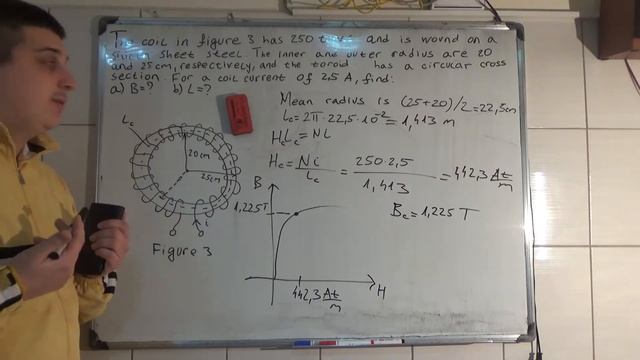 The coil in figure 3 has 250 and is wound on a
sheet steel. The inner and outer radius are 20
and 25cm, respectively, and the toroid has a circular cross
section. For a coil current of 2,5 A, find:
a) B=? b) L=?
Mean radius is (25+20)/2=22,5cm
Lc=2π·22,5·10⁻²=1,413 m
HcLc=NI
Hc=Ni/Lc=250·2,5/1,413=442,3 At/m
Bc=1,225 T
Lc
20cm
25cm
i
Figure 3
B
1,225T
442,3 At/m
H